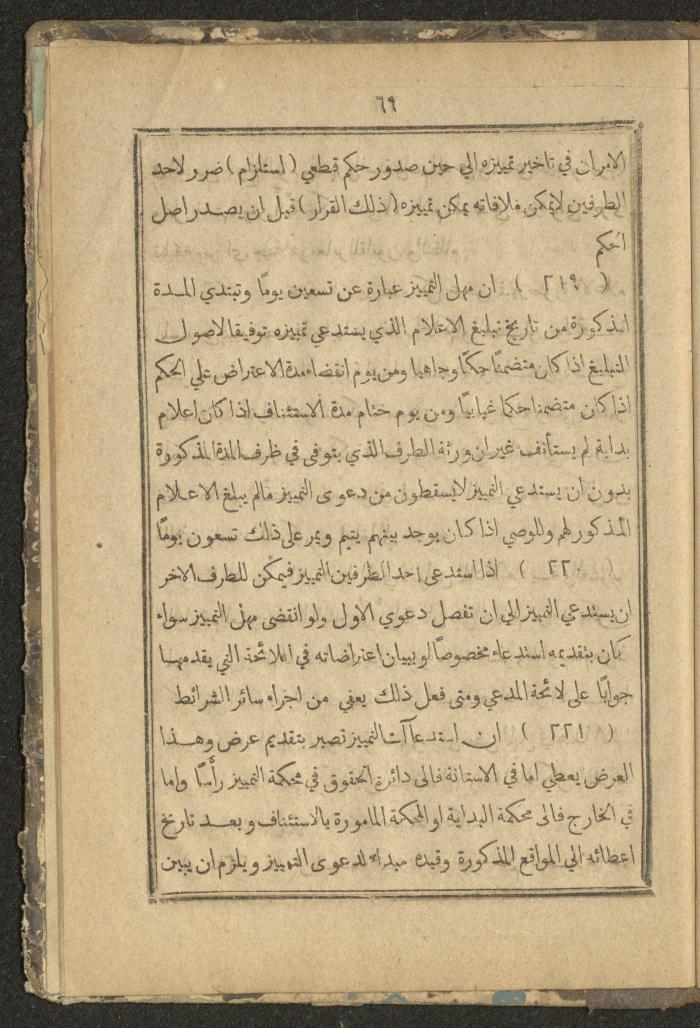 ٦٩
الامران في تاخير تمييزه الي حين صدور حكم قطعي ( استلزام ) ضرر لاحد
الطرفين لايمكن ملافاته يمكن تمييزه ( ذلك القرار ) قبل ان يصدر اصل
الحكم
( ٢١٩ ) ان مهل التمييز عبارة عن تسعين يومًا وتبتدي المدة
المذكورة من تاريخ تبليغ الاعلام الذي يستدعي تمييزه توفيقا لاصول
التبليغ اذا كان متضمنًا حكمًا وجاهيا ومن يوم انقضاء مدة الاعتراض علي الحكم
اذا كان متضمنا حكما غيابيًا ومن يوم ختام مدة الاستئناف اذا كان اعلام
بداية لم يستأنف غير ان ورثة الطرف الذي يتوفى في ظرف المدة المذكورة
بدون ان يستدعي التمييز لايسقطون من دعوى التمييز مالم يبلغ الاعلام
المذكور لهم وللوصي اذا كان يوجد بينهم يتيم ويمر على ذلك تسعون يومًا
( ٢٢٠ ) اذا استدعى احد الطرفين التمييز فيمكن للطرف الاخر
ان يستدعي التمييز الي ان تفصل دعوي الاول ولو انقضى مهل التمييز سواء
كان بتقديمه استدعاء مخصوصًا او ببيان اعتراضاته في اللائحة التي يقدمها
جوابًا على لائحة المدعي ومتى فعل ذلك يعفي من اجراء سائر الشرائط
( ٢٢١ ) ان استدعاآت التمييز تصير بتقديم عرض وهذا
العرض يعطي اما في الاستانة فالى دائرة الحقوق في محكمة التمييز رأسًا واما
في الخارج فالى محكمة البداية او المحكمة المامورة بالاستئناف وبعد تاريخ
اعطائه الي المواقع المذكورة وقيده مبداء لدعوى التمييز ويلزم ان يبين